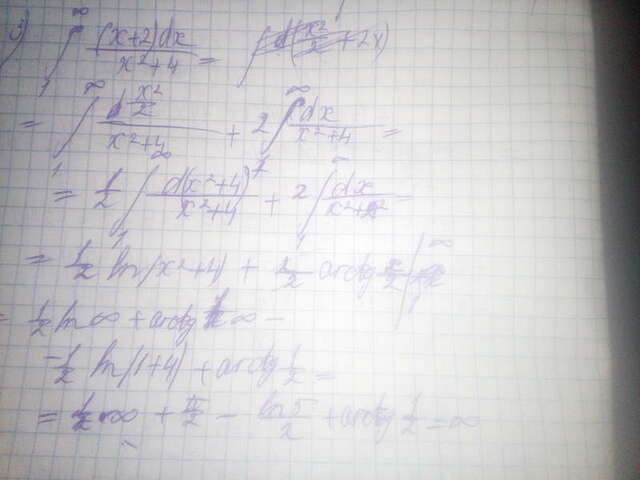 3) ∫₁^∞ (x+2)dx / x²+4 =
= ∫₁^∞ d x²/2 / x²+4 + 2 ∫₁^∞ dx / x²+4 =
= 1/2 ∫₁^∞ d(x²+4) / x²+4 + 2 ∫₁^∞ dx / x²+2² =
= 1/2 ln|x²+4| + 2/2 arctg x/2 |₁^∞
= 1/2 ln ∞ + arctg ∞ −
− 1/2 ln(1+4) + arctg 1/2 =
= 1/2 ∞ + π/2 − ln5/2 + arctg 1/2 = ∞